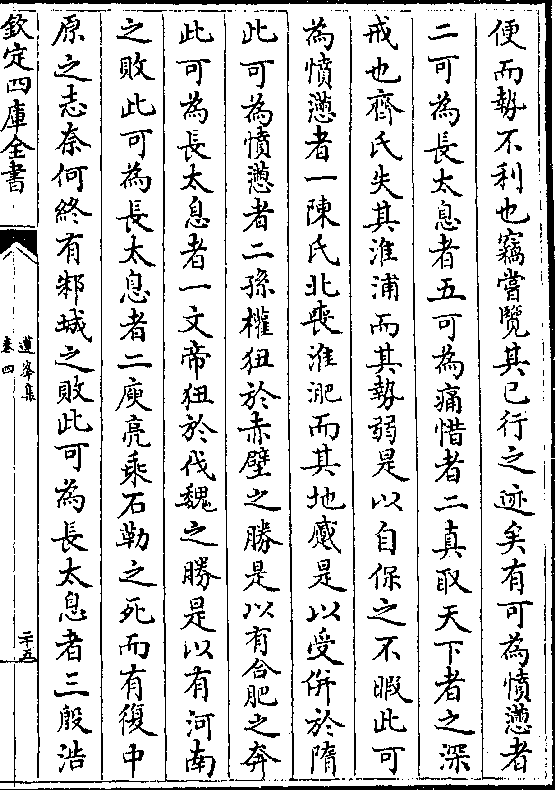 便而勢不利也竊嘗覽其已行之迹矣有可為憤懣者
二可為長太息者五可為痛惜者二真取天下者之深
戒也齊氏失其淮浦而其勢弱是以自保之不暇此可
為憤懣者一陳氏北喪淮淝而其地蹙是以受併於隋
此可為憤懣者二孫權狃於赤壁之勝是以有合肥之奔
此可為長太息者一文帝狃於伐魏之勝是以有河南
之敗此可為長太息者二庾亮乘石勒之死而有復中
原之志奈何終有邾城之敗此可為長太息者三殷浩
欽定四庫全書
卷四
二十五